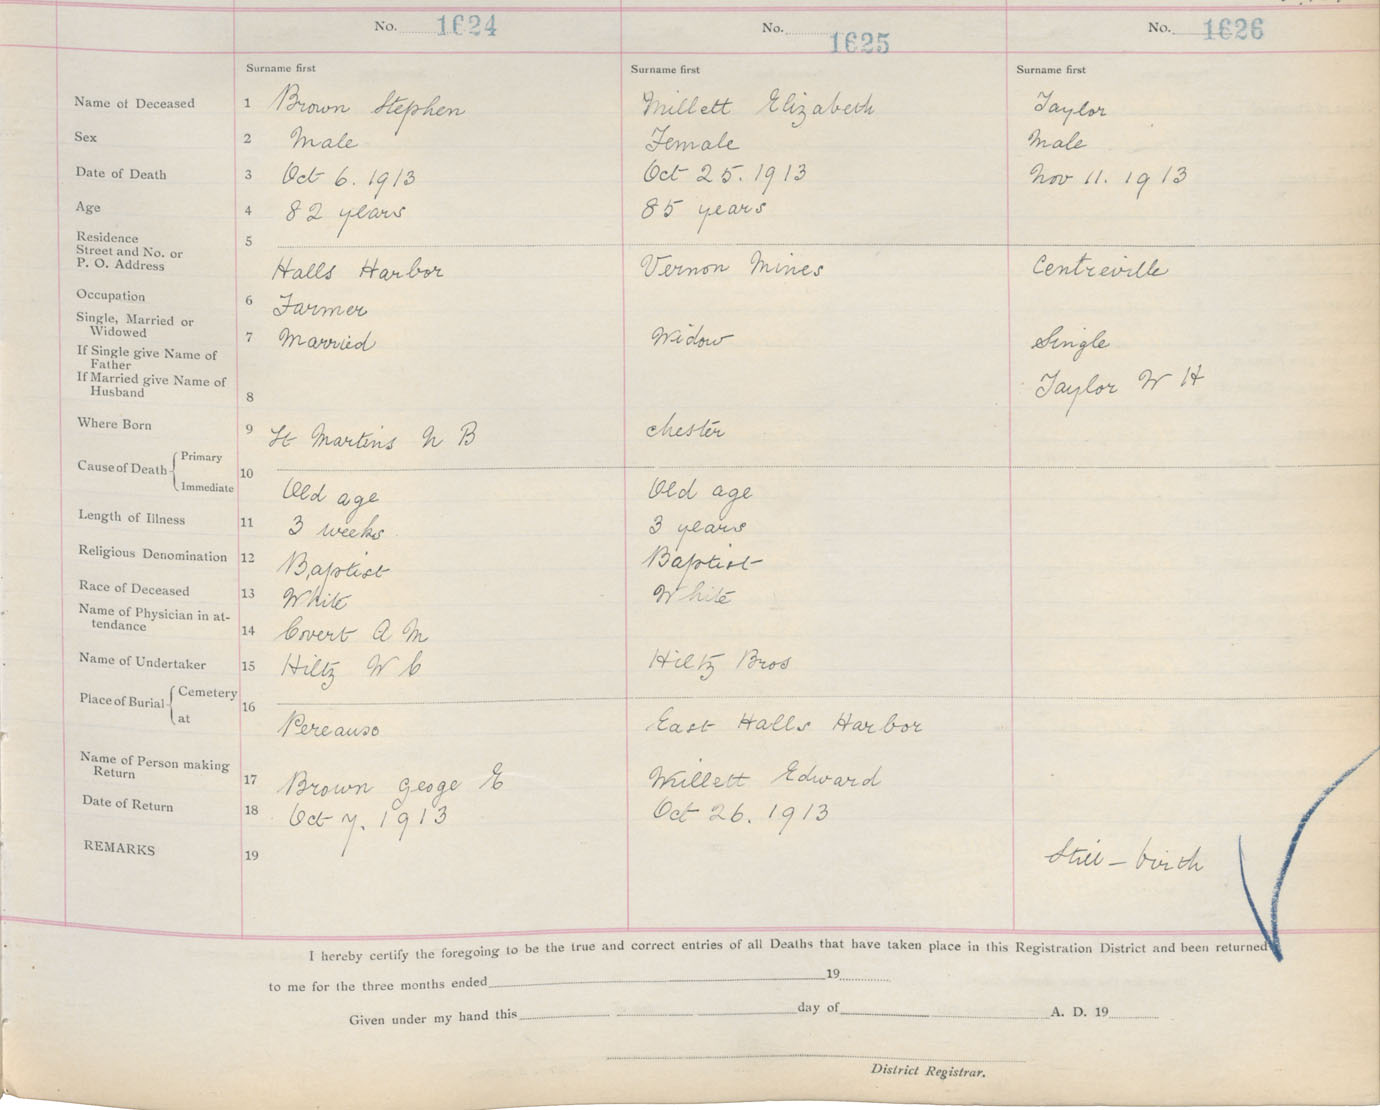 No. 1624 No. 1625 No. 1626
Surname first Surname first Surname first
Name of Deceased 1 Brown Stephen Millett Elizabeth Taylor
Sex 2 Male Female Male
Date of Death 3 Oct 6. 1913 Oct 25. 1913 Nov 11. 1913
Age 4 82 years 85 years
Residence
Street and No. or 5
P. O. Address Halls Harbor Vernon Mines Centreville
Occupation 6 Farmer
Single, Married or
Widowed 7 Married Widow Single
If Single give Name of
Father
If Married give Name of Taylor W H
Husband 8
Where Born 9 St Martins N B Chester
Cause of Death Primary 10
Immediate Old age Old age
Length of Illness 11 3 weeks 3 years
Religious Denomination 12 Baptist Baptist
Race of Deceased 13 White White
Name of Physician in at-
tendance 14 Covert A M
Name of Undertaker 15 Hiltz W C Hiltz Bros
Place of Burial Cemetery 16
at Pereauso East Halls Harbor
Name of Person making
Return 17 Brown Geoge E Millett Edward
Date of Return 18 Oct 7. 1913 Oct 26. 1913
REMARKS 19 Still-birth
I hereby certify the foregoing to be the true and correct entries of all Deaths that have taken place in this Registration District and been returned
to me for the three months ended 19
Given under my hand this day of A. D. 19
District Registrar.